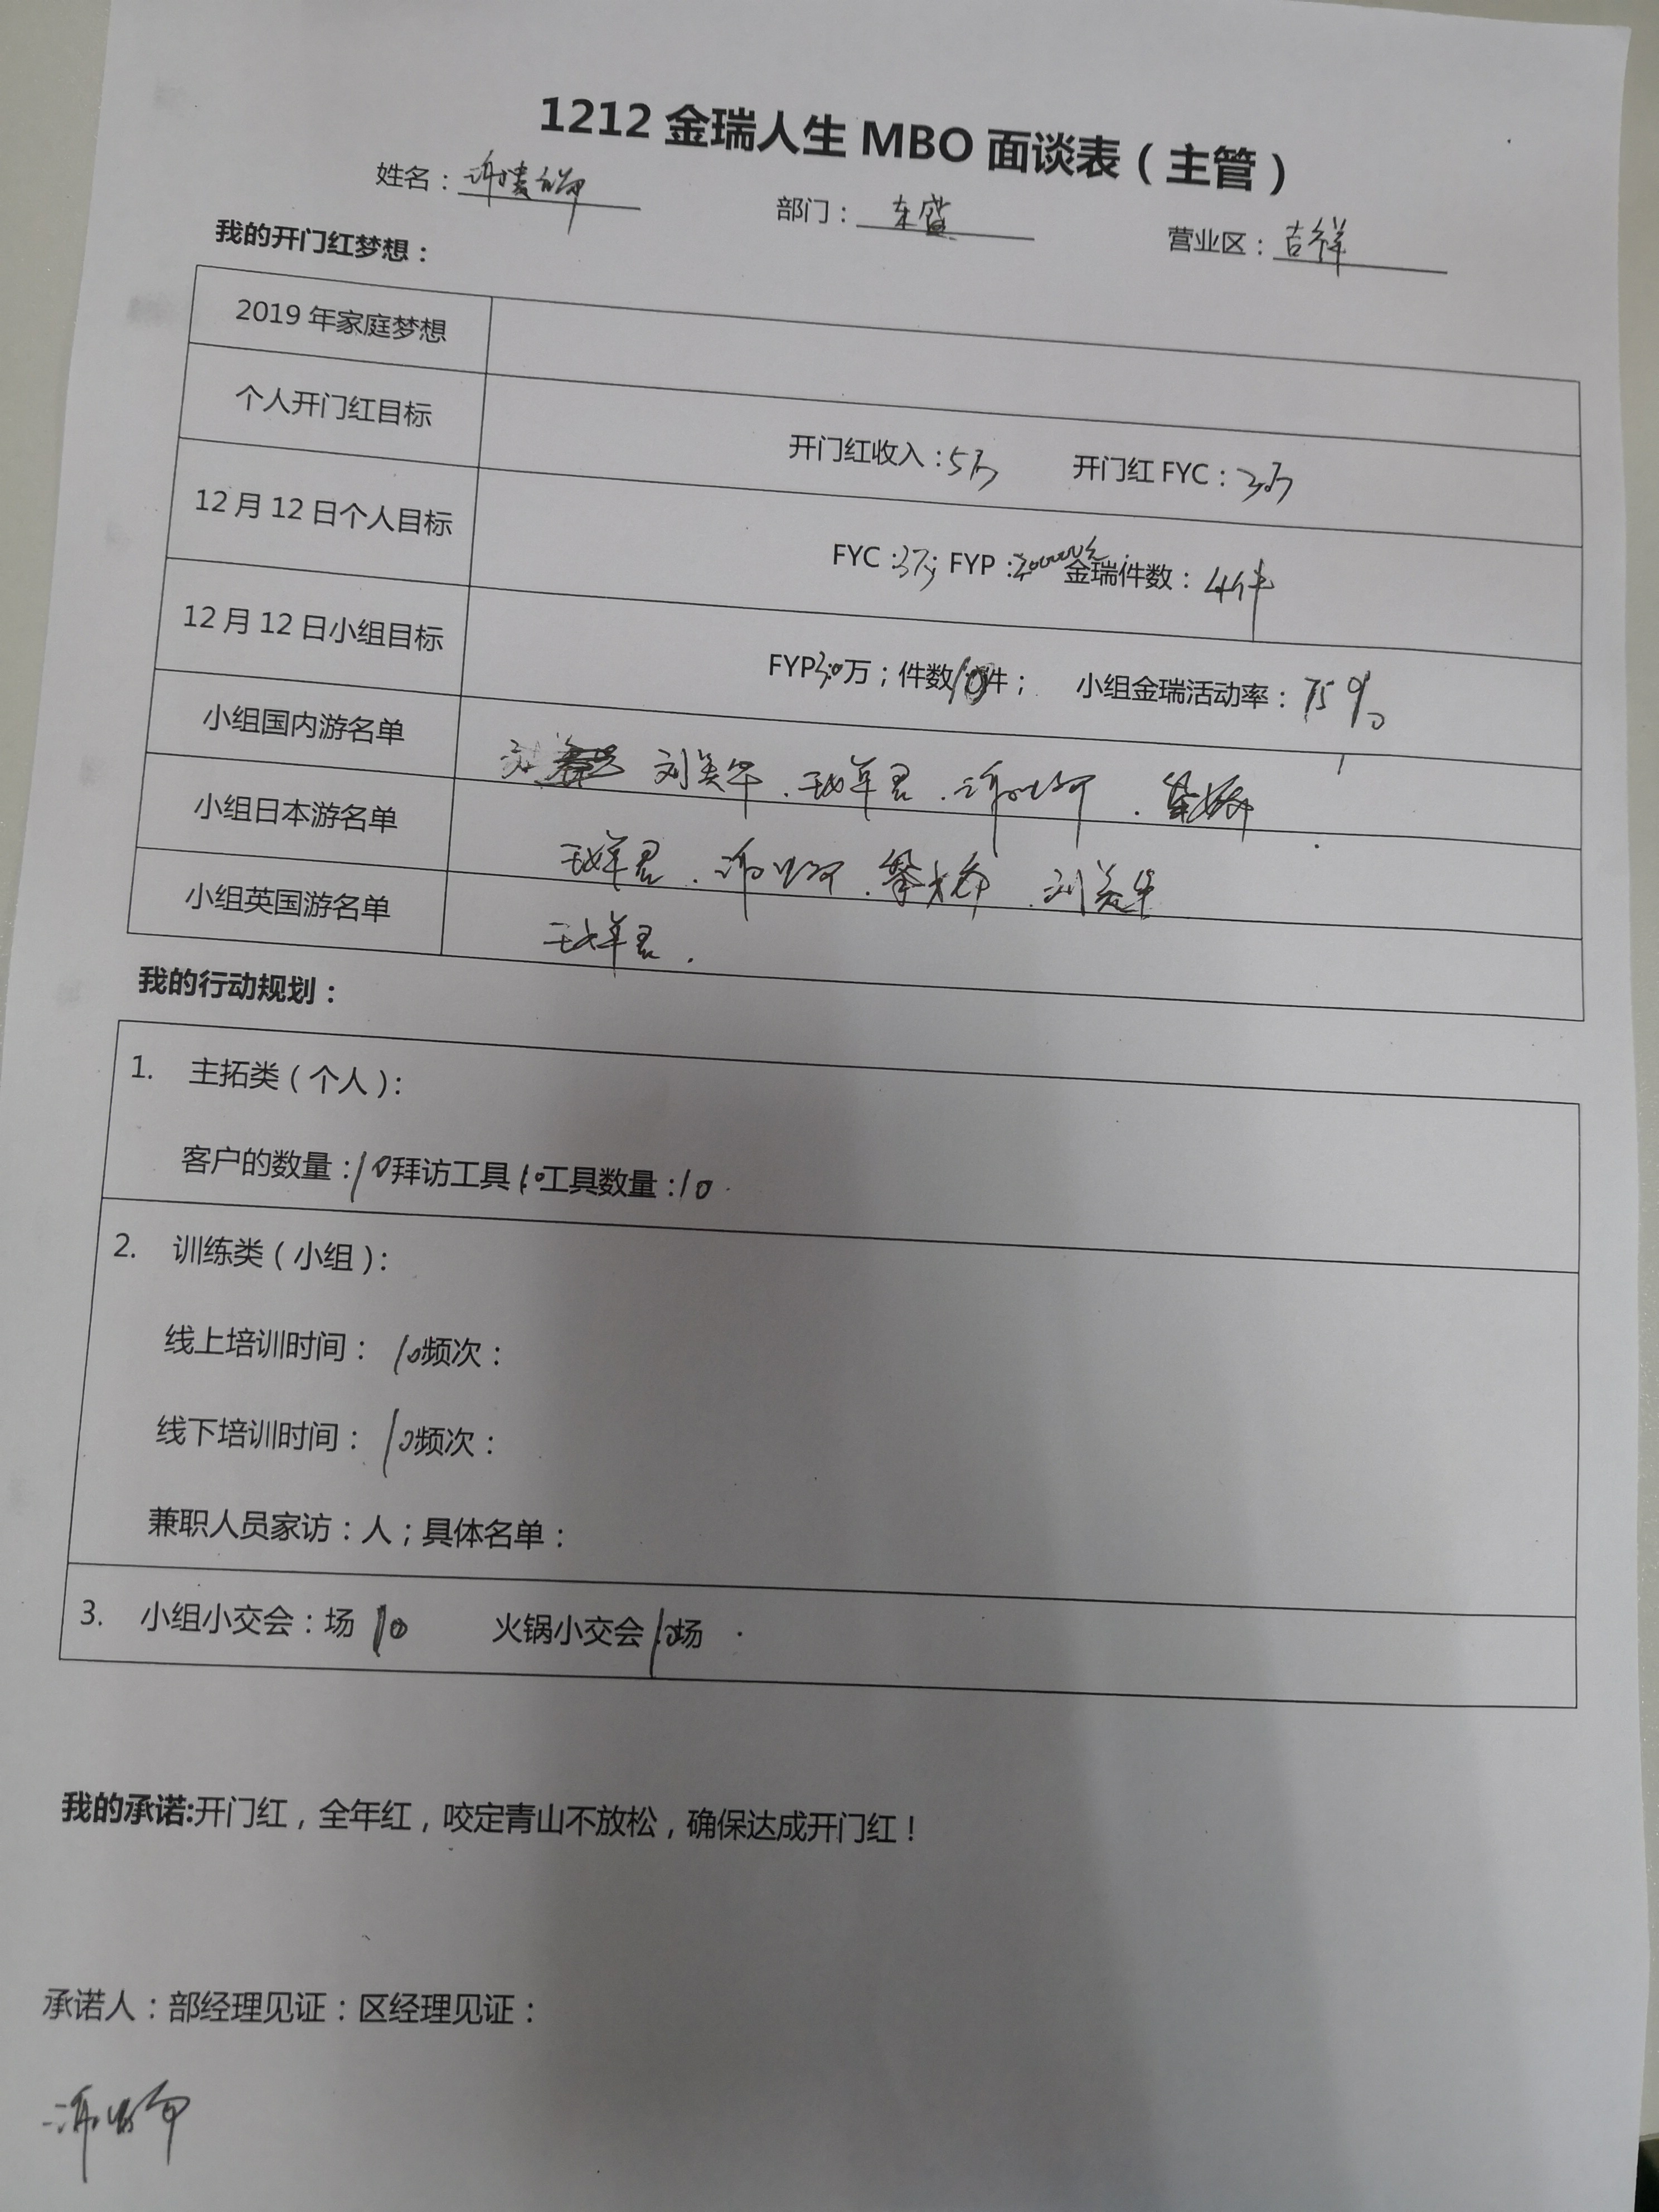 1212金瑞人生MBO面谈表（主管）
姓名： 部门：东盛 营业区：吉祥
我的开门红梦想：
2019年家庭梦想
个人开门红目标 开门红收入：5万 开门红FYC：3万
12月12日个人目标 FYC：3万；FYP： 金瑞件数：4件
12月12日小组目标 FYP30万；件数10件； 小组金瑞活动率：75%
小组国内游名单 刘美华
小组日本游名单 刘美华
小组英国游名单
我的行动规划：
1. 主拓类（个人）：
客户的数量：10拜访工具10工具数量：10
2. 训练类（小组）：
线上培训时间： 10频次：
线下培训时间： 10频次：
兼职人员家访：人；具体名单：
3. 小组小交会：场 10 火锅小交会10场
我的承诺:开门红，全年红，咬定青山不放松，确保达成开门红！
承诺人：部经理见证：区经理见证：